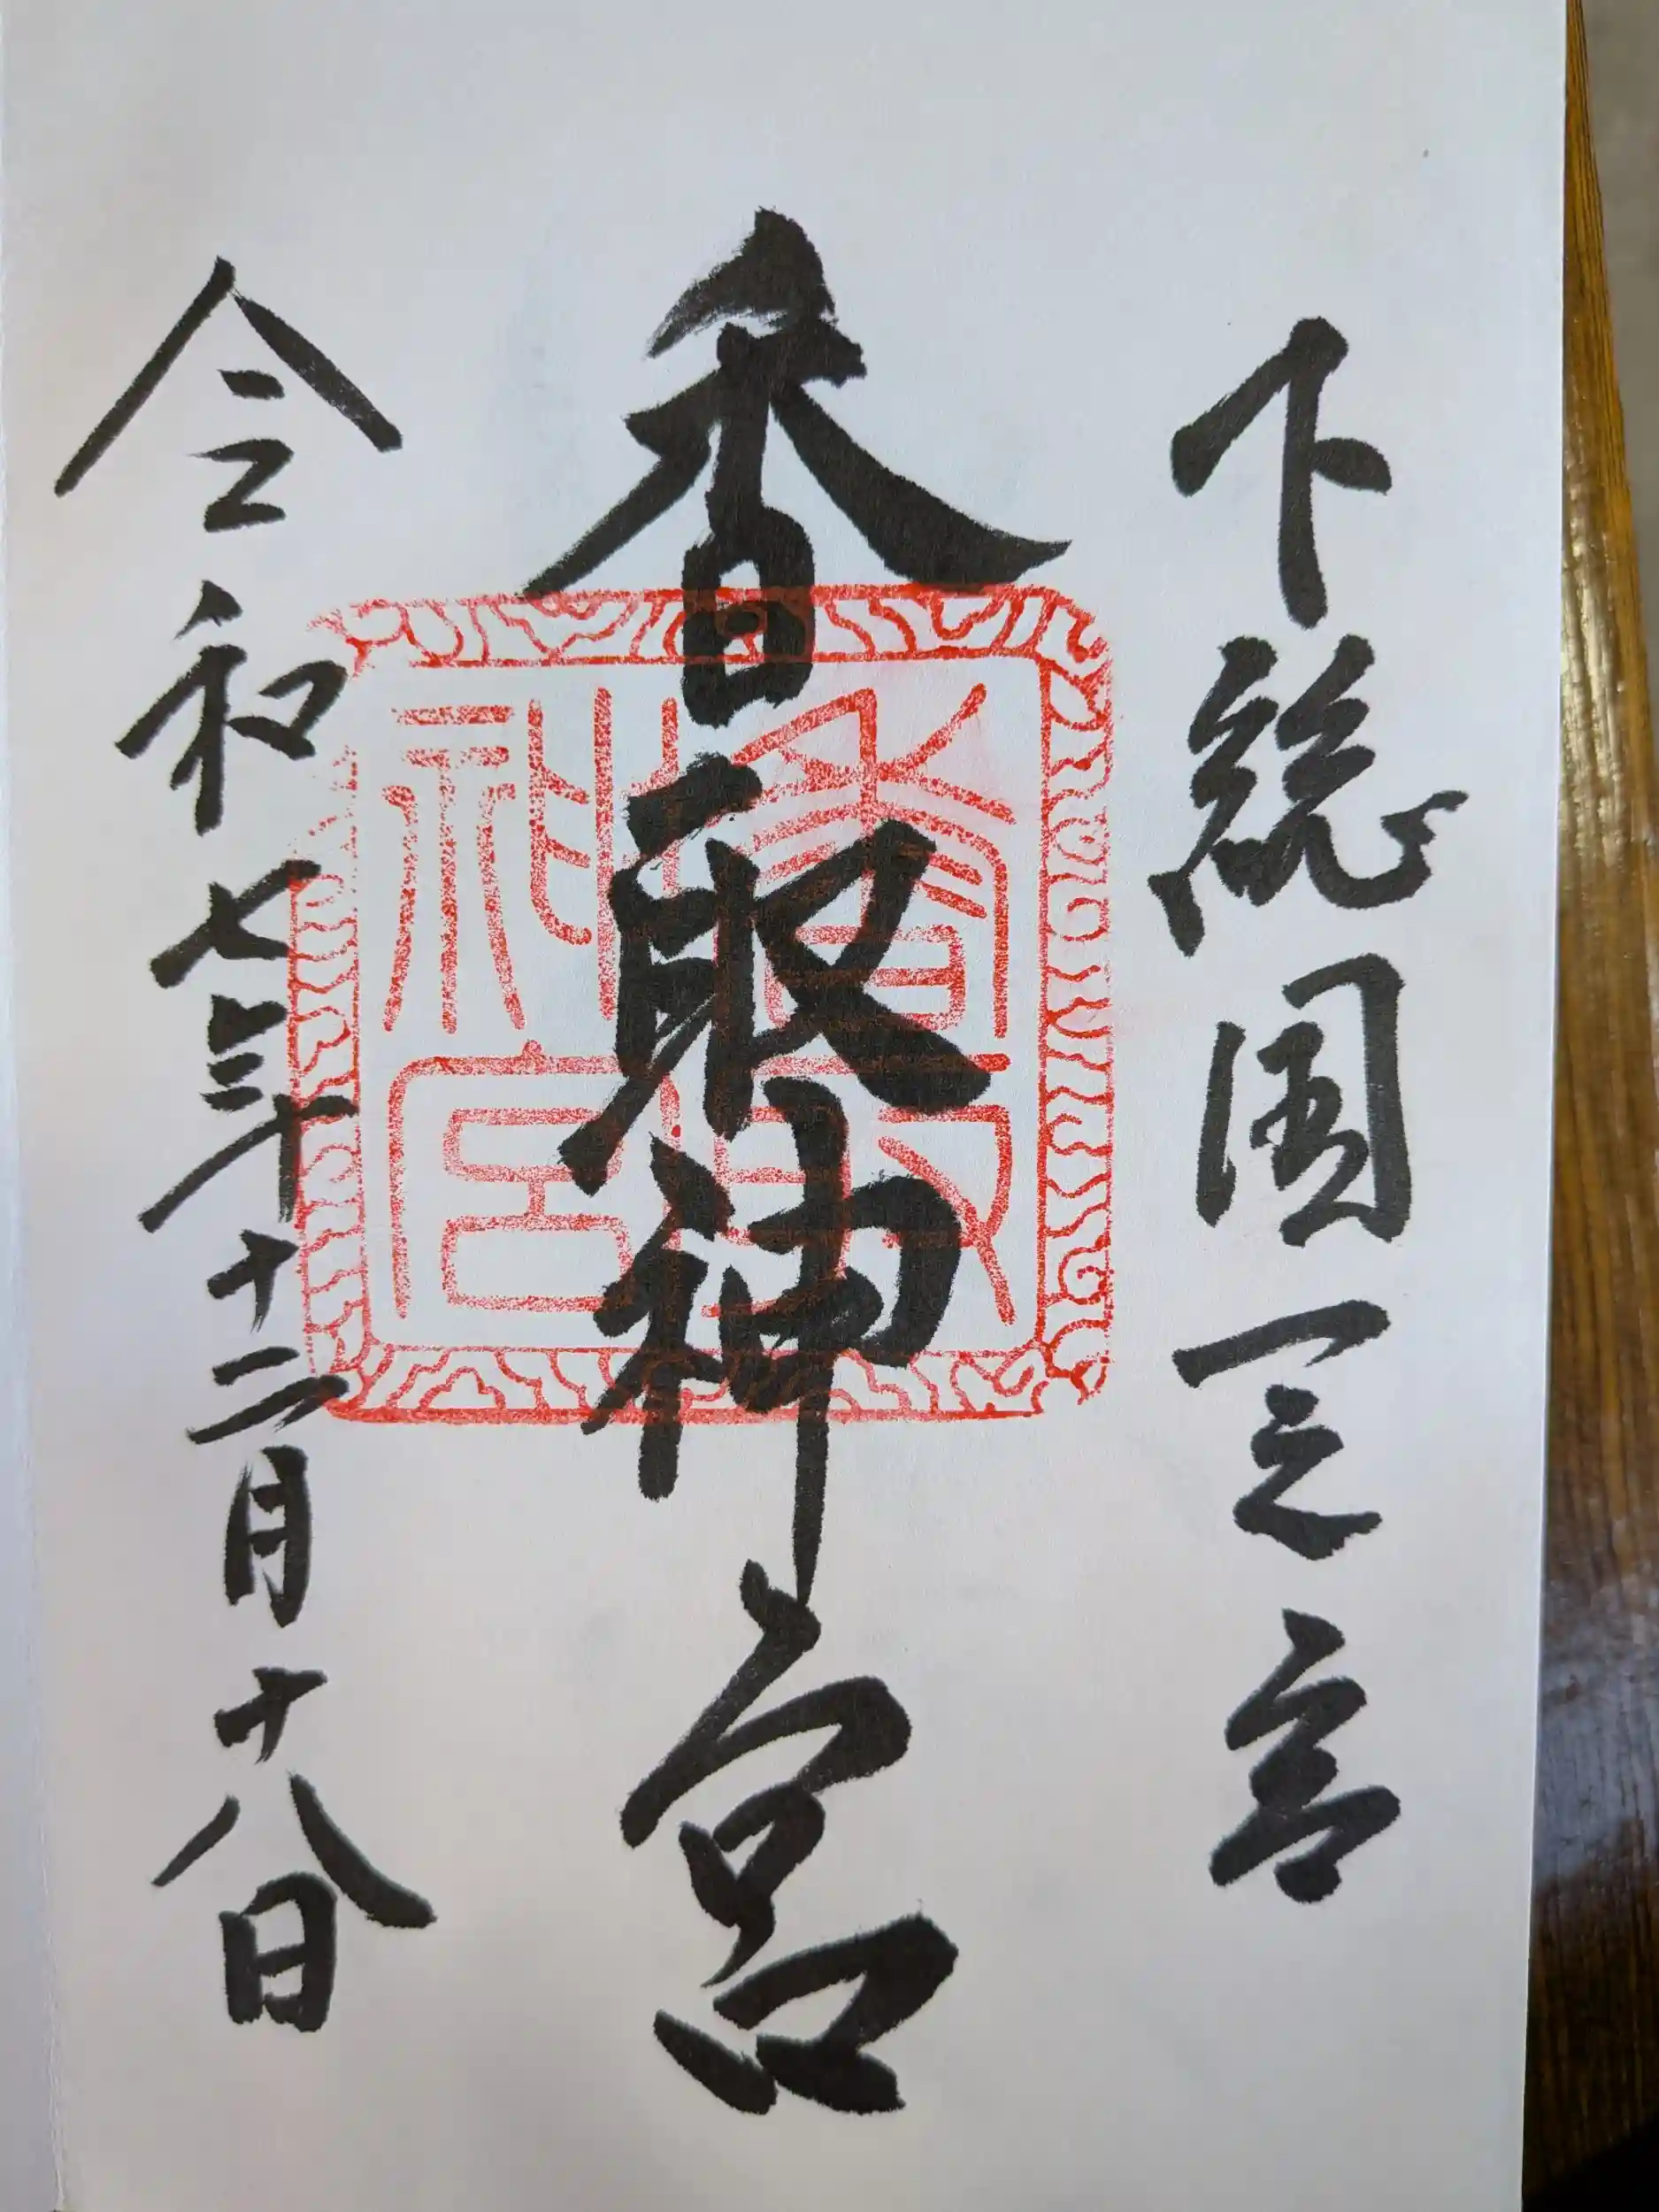 下総国一之宮
香取神宮
香取神宮
令和七年十二月十八日